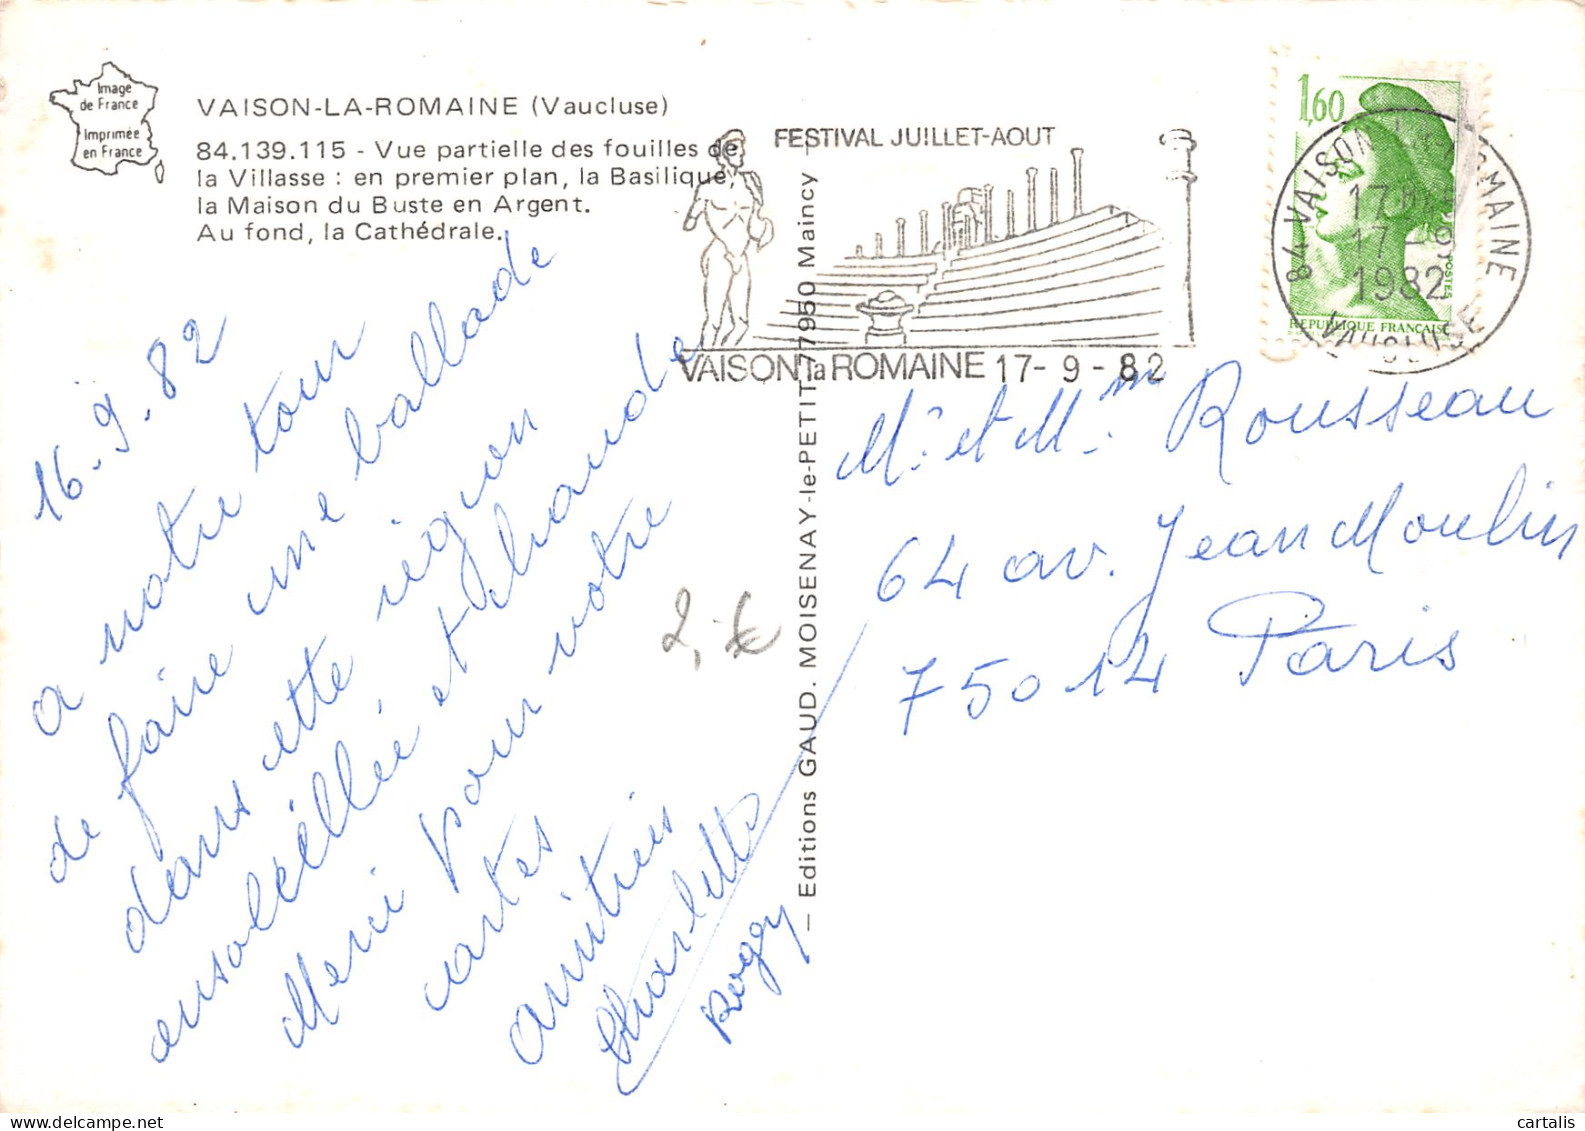 Image
de France
Imprimée
en France
VAISON-LA-ROMAINE (Vaucluse)
84.139.115 - Vue partielle des fouilles de
la Villasse : en premier plan, la Basilique,
la Maison du Buste en Argent.
Au fond, la Cathédrale.
FESTIVAL JUILLET-AOUT
VAISON la ROMAINE 17-9-82
1,60
REPUBLIQUE FRANCAISE
POSTES
84 VAISON LA ROMAINE
17H
17-9
1982
VAUCLUSE
16-9-82
a notre tour
de faire une ballade
dans cette région
ensoleillée et chaude
Merci pour votre
cartes
amitiés
Charlotte
Roger
2,-€
— Editions GAUD. MOISENAY-le-PETIT 77950 Maincy
Mr et Mme Rousseau
64 av. Jean Moulin
75014 Paris
cartalis